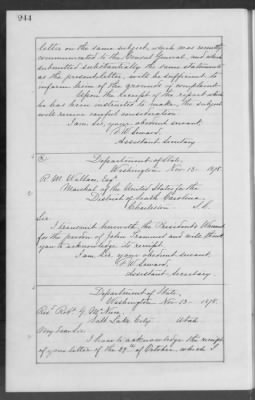 244
letter on the same subject, which was recently
communicated to the Consul General, and which
submitted substantially the same statements
as the present letter, will be sufficient to
inform him of the grounds of complaint.
Upon the receipt of the report which
he has been instructed to make, the subject
will receive careful consideration.
I am, Sir, your obedient servant,
F. W. Seward,
Assistant Secretary
Department of State,
Washington Nov. 13. 1878.
R. M. Wallace, Esq.
Marshal of the United States for the
District of South Carolina,
Charleston S. C.
Sir:
I transmit herewith, the President's Warrant
for the pardon of John and will thank
you to acknowledge its receipt.
I am, Sir, your obedient servant,
F. W. Seward,
Assistant Secretary.
Department of State,
Washington Nov 13 1878.
Rev. Robt. G. McNiece,
Salt Lake City Utah
My dear Sir:
I have to acknowledge the receipt
of your letter of the 29th of October, which I